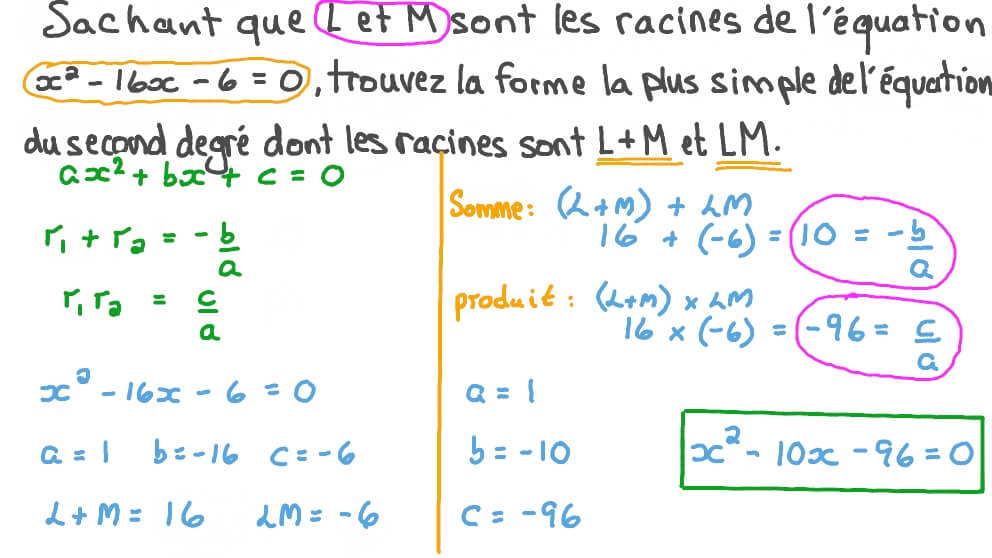 Sachant que L et M sont les racines de l'équation
x² - 16x - 6 = 0, trouvez la forme la plus simple de l'équation
du second degré dont les racines sont L+M et LM.
ax² + bx + c = 0
r₁ + r₂ = - b/a
r₁ r₂ = c/a
x² - 16x - 6 = 0
a = 1 b = -16 c = -6
L + M = 16 LM = -6
Somme: (L+M) + LM
16 + (-6) = 10 = - b/a
produit: (L+M) × LM
16 × (-6) = -96 = c/a
a = 1
b = -10
c = -96
x² - 10x - 96 = 0